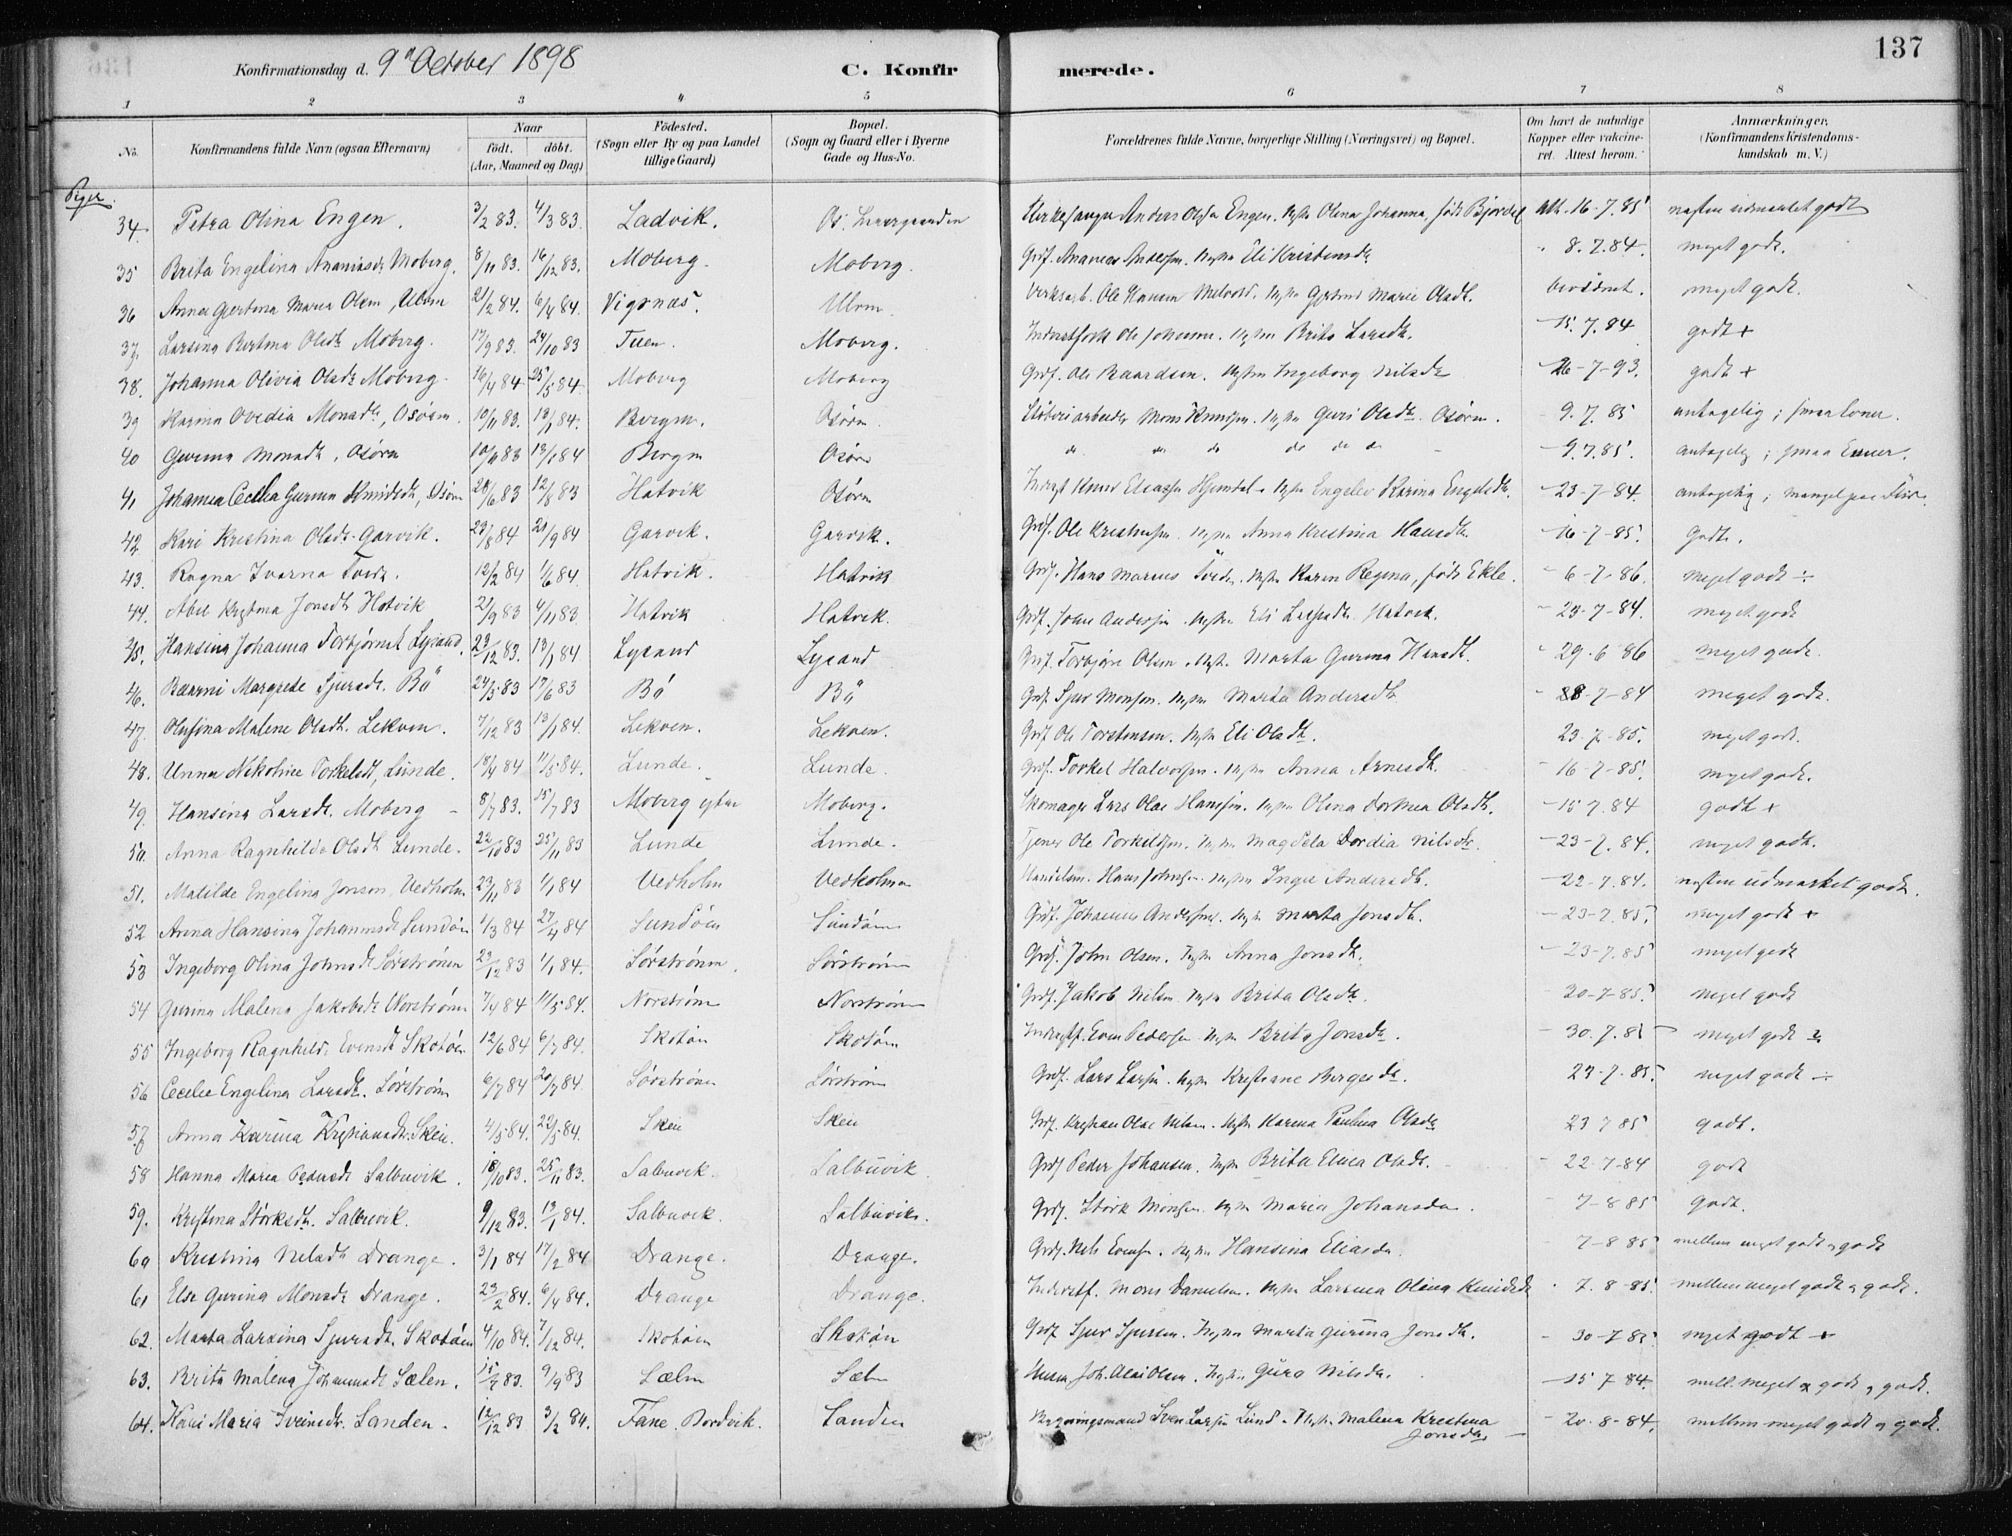 137
Konfirmationsdag d. 9n October 1898
C. Konfirmerede.
1 2 3 4 5 6 7 8
No.
Konfirmandens fulde Navn (ogsaa Efternavn)
Naar
födt. döbt.
(Aar, Maaned og Dag)
Födested.
(Sogn eller By og paa Landet
tillige Gaard)
Bopæl.
(Sogn og Gaard eller i Byerne
Gade og Hus-No.
Forældrenes fulde Navne, borgerlige Stilling (Næringsvei) og Bopæl.
Om havt de naturlige
Kopper eller vakcine-
ret. Attest herom.
Anmærkninger.
(Konfirmandens Kristendoms-
kundskab m. V.)
Piger.
34. Petra Olina Engen. 3/2 83. 4/3 83. Ladvik. Os. Anders Engen. Olina Johanna, født Bjordal Att. 16-7.85 næsten udmærket godt
35 Brita Engelina Ananiasdt Moberg. 8/11 83. 16/12 83. Moberg. Moberg. Grdf. Ananias Andersen. Eli Kristensdt 8.7.84. meget godt.
36 Anna Gjertina Maria Olsen, Ulven 21/2 84. 6/4 84. Vigsnæs. Ulven. Ole Hansen. Gjertrud Marie Olsdt. meget godt.
37. Larsina Bertina Olsdt Moberg. 17/9 83. 24/10 83 Tuen. Moberg. Ole Johansen. Brita Larsdt. 15.7.84 godt +
38. Johanna Olivia Olsdt Moberg. 16/4 84. 25/5 84. Moberg Moberg Grdf. Ole Baardsen. Ingeborg Nilsdt 26-7-93. godt +
39 Karina Ovedia Monsdt, Osøren 10/11 83. 13/1 84. Bergen. Osøren. Mons Knudsen. Guri Olsdt. Osøren. 9.7.85 antagelig; smaa Evner.
40 Gurina Monsdt, Osøren 10/11 83 13/1 84 Bergen Osøren do do do do do do 9.7.85. antagelig; smaa Evner.
41 Johanna Cecilia Gurina Knudsdt, Osøren 28/6 83 12/8 83 Hatvik Osøren Knud Eliassen. Engelev Karina Engelsdt. 23-7-84. antagelig; mangel paa
42. Kari Kristina Olsdt. Garvik. 23/8 84 21/9 84 Garvik. Garvik. Grdf. Ole Kristensen. Anna Kristina Hansdt. 16-7-85. Godt.
43. Ragna Ivarna Tveit. 12/2 84 1/6 84. Hatvik. Hatvik Grdf. Hans Marius Tveiten. Karen Regina, født Ekle. 6-7-86. meget godt ÷
44. Abel Kristina Jonsdt Hatvik 21/9 83 4/11 83. Hatvik Hatvik. Grdf. John Andersen. Eli Larsdt Hatvik. 23-7-84. meget godt
45. Hansina Johanna Torbjørnsdt Lysand. 23/12 83. 13/1 84 Lysand Lysand Grdf. Torbjørn Olsen. Marta Gurina Hansdt. 29-6 86 meget godt.
46. Margrete Sjursdt. Bø 24/5 83 17/6 83 Bø Bø Grdf. Sjur Monsen. Marta Andersdt 28-7-84 meget godt.
47. Olufina Malene Olsdt. Lekven. 7/12 83 13/1 84. Lekven. Lekven. Grdf. Ole Torstensen. Eli Olsdt. 23-7-85. meget godt.
48. Unna Nikoline Torkelsdt, Lunde. 18/4 84 11/5 84. Lunde. Lunde. Grdf. Torkel Halvorsen. Anna Arnesdt. 16-7-85. meget godt.
49. Hansina Larsdt. Moberg 8/7 83. 15/7 83 Moberg Moberg. Skomager Lars Olai Hanssen. Olina Olsdt. 15 7.84 godt +
50. Anna Ragnhilda Olsdt Lunde. 22/10 83 25/11 83 Lunde Lunde. Tjener Ole Torkildsen. Magdela Dordia Nilsdt. 23-7.84. meget godt.
51. Matilde Engelina Jonsen, Vedholm 23/11 83 1/1 84 Vedholm Vedholmen Handelsm. Hans Johnsen. Inger Andersdt. 22-7.84. næsten udmærket godt.
52 Anna Hansina Johannesdt Sundøen 1/3 84 27/4 84 Sundöen Sundöen Grdf. Johannes Andersen. Marta Jonsdt. 23-7.85. meget godt +
53 Ingeborg Olina Johnsdt Sörströnen 23/12 83 1/1 84. Sörströnen. Sörströnen Grdf. John Olsen. Anna Jonsdt. 23-7.85 meget godt
54 Gurina Malena Jakobsdt Norströnen 7/4 84 11/5 84. Norströnen Norströnen Grdf. Jakob Nilsen. Brita Olsdt. 30-7-85. meget godt
55 Ingeborg Ragnhild Evensdt Skotøen 12/6 84 6/7 84. Skotöen Skotöen Even Pedersen Brita Jonsdt. 30.7.85 meget godt
56 Cecelie Engelina Larsdt. Sörströnen 6/7 84 20/7 84. Sörströnen Sörströnen Grdf. Lars Larsen. Kristiane Bergesdt. 23-7-85. meget godt ÷
57. Anna Karina Kristiansdt. Skeie. 4/5 84. 22/5 84. Skeie Skeie Grdf. Kristian Olai Nilsen. Karina Paulina Olsdt 23 7 85 godt.
58 Hanna Maria Pedersdt Salbuvik. 18/10 83. 25/11 83. Salbuvik. Salbuvik Grdf Peder Johansen. Brita Elina Olsdt. 22-7-84 godt
59. Kristina Størksdt. Salbuvik. 9/12 83. 13/1 84. Salbuvik. Salbuvik. Grdf. Størk Monsen. Maria Johansdt. 7-8 85 godt.
60 Kristina Nilsdt Drange. 3/1 84 17/2 84 Drange. Drange. Grdf. Nils Evensen. Hansina Eliasdt. 7-8 85 mellem meget godt og godt
61 Else Gurina Monsdt Drange. 23/2 84. 6/4 84. Drange Drange. Mons Danielsen. Larsina Olina Knudsdt 7.8-85. mellem meget godt og godt.
62. Marta Larsina Sjursdt. Skotøen 4/10 84. 7/12 84. Skotöen Skotøen Grdf Sjur Sjursen. Marta Gurina Jonsdt. 30-7 85 meget godt ÷
63. Brita Malena Johannesdt Sælen. 15/7 83. 9/9 83 Sælen Sælen Joh. Olai Olsen. Guro Nilsdt. 15 7 84. mell. meget godt og godt.
64. Maria Sveinsdt. Sanden. 12/12 83 3/2 84. Fane. Bordvik. Sanden Bygningsmand Sven Larsen Lund. Malena Kristina Jonsdt 20-8-84. mellem meget godt og godt.